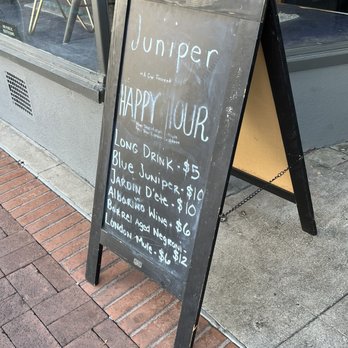 Juniper
HAPPY HOUR
LONG DRINK - $5
Blue Juniper - $10
JARDIN D'ete - $10
Albarino Wine - $6
Barrel Aged Negroni - $12
London Mule - $6